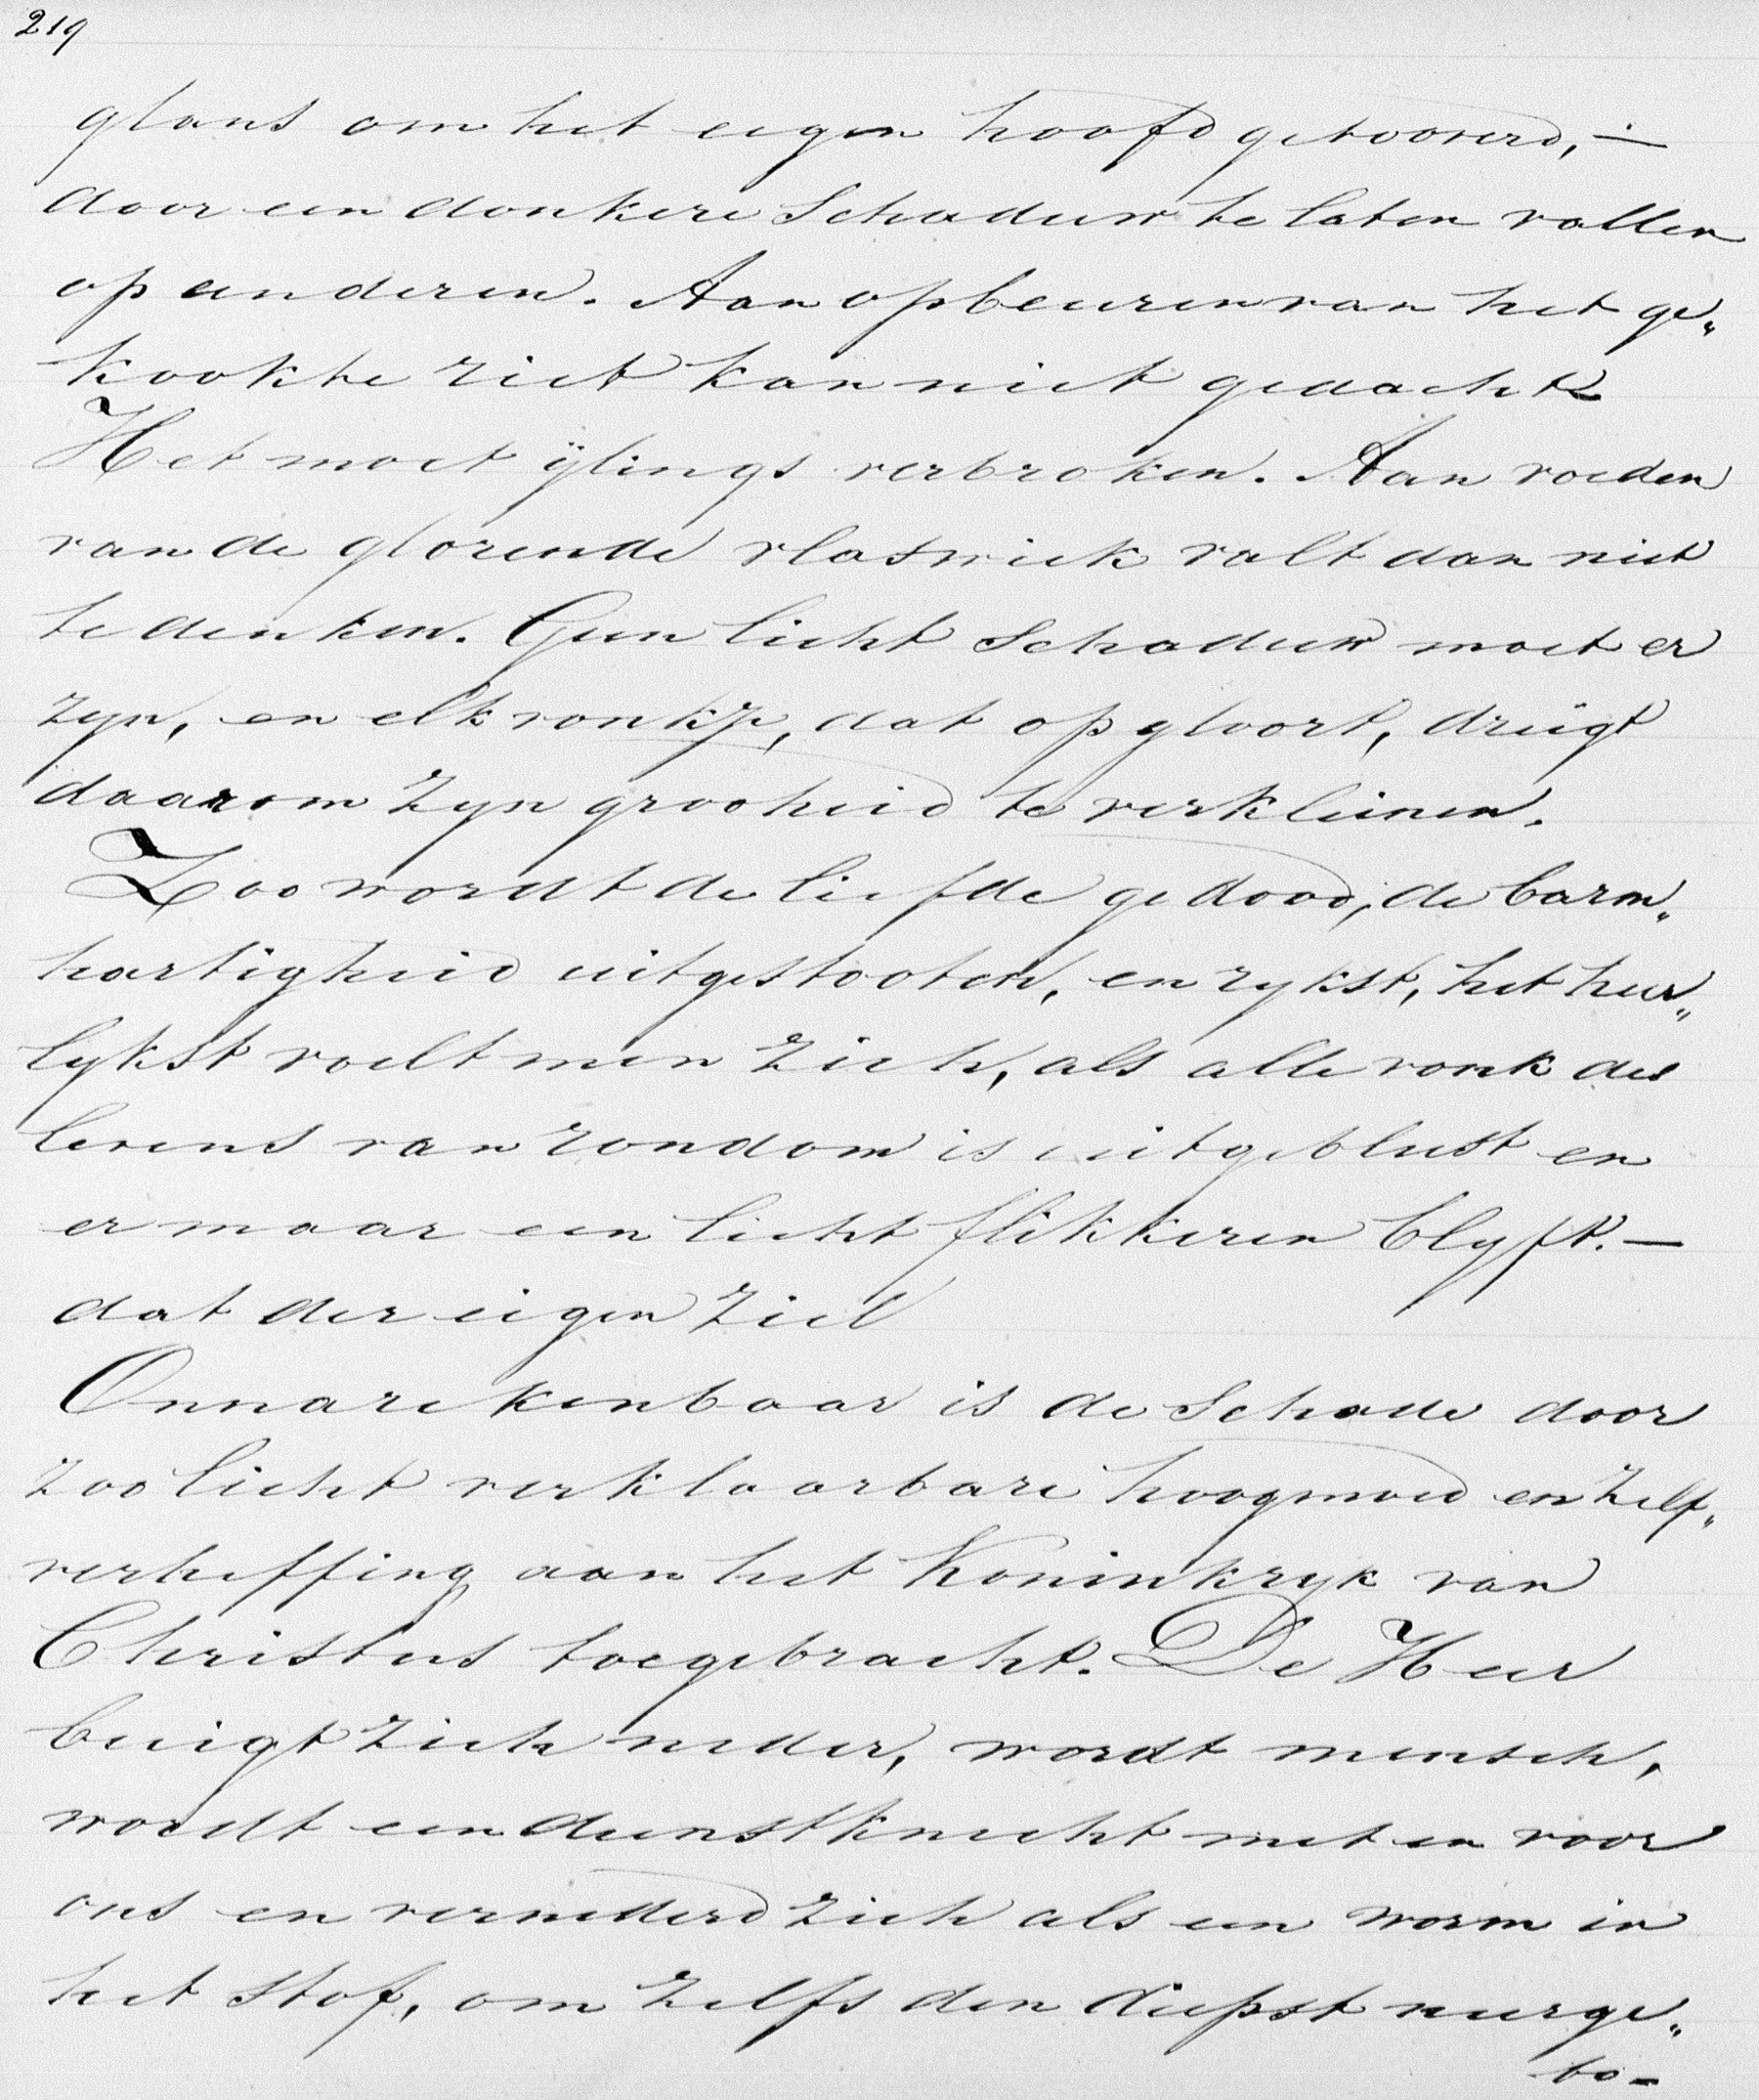 219
glans om het eigen hoofd getooverd, —
door een donkere schaduw te laten vallen
op anderen. Aan opbeuren van het ge„
krookte riet kan niet gedacht
Het moet ijlings verbroken. Aan voeden
van de glorende vlaswiek valt dan niet
te denken. Geen licht schaduw moet er
zyn, en elk vonkje, dat op gloort, dreigt
daarom zyn grooheid te verkleinen.
Zoo wordt de liefde gedood, de barm„
hartigheid uitgestooten, en rykst, het heer„
lykst voelt men zich, als alle vonk des
levens van rondom is uitgeblust en
er maar een licht flikkeren blyft. —
dat der eigen ziel
Onnarekenbaar is de schade door
zoo licht verklaarbare hoogmoed en zelf„
verheffing aan het Koninkryk van
Christus toegebracht. De Heer
buigt zich neder, wordt mensch,
wordt een dienstknecht met en voor
ons en vernederd zich als een worm in
het stof, om zelfs den diepst neerge„
bo-